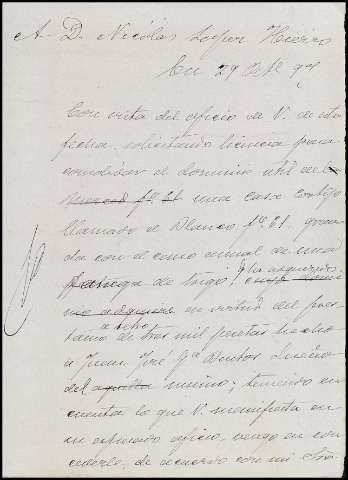 A. D. Nicolás López Hierro
En 29 Octe
Con vista del oficio de V. de esta
fecha, solicitando licencia para
consolidar el dominio útil de
una casa cortijo
llamado el Blanco fº 21. grava
da con el censo anual de una
fanega de trigo,
en virtud del pres
tamo de tres mil pesetas hecho
a Juan José
del mismo; teniendo en
cuenta lo que V. manifiesta en
su expresado oficio, vengo en con
cederle, de acuerdo con mi